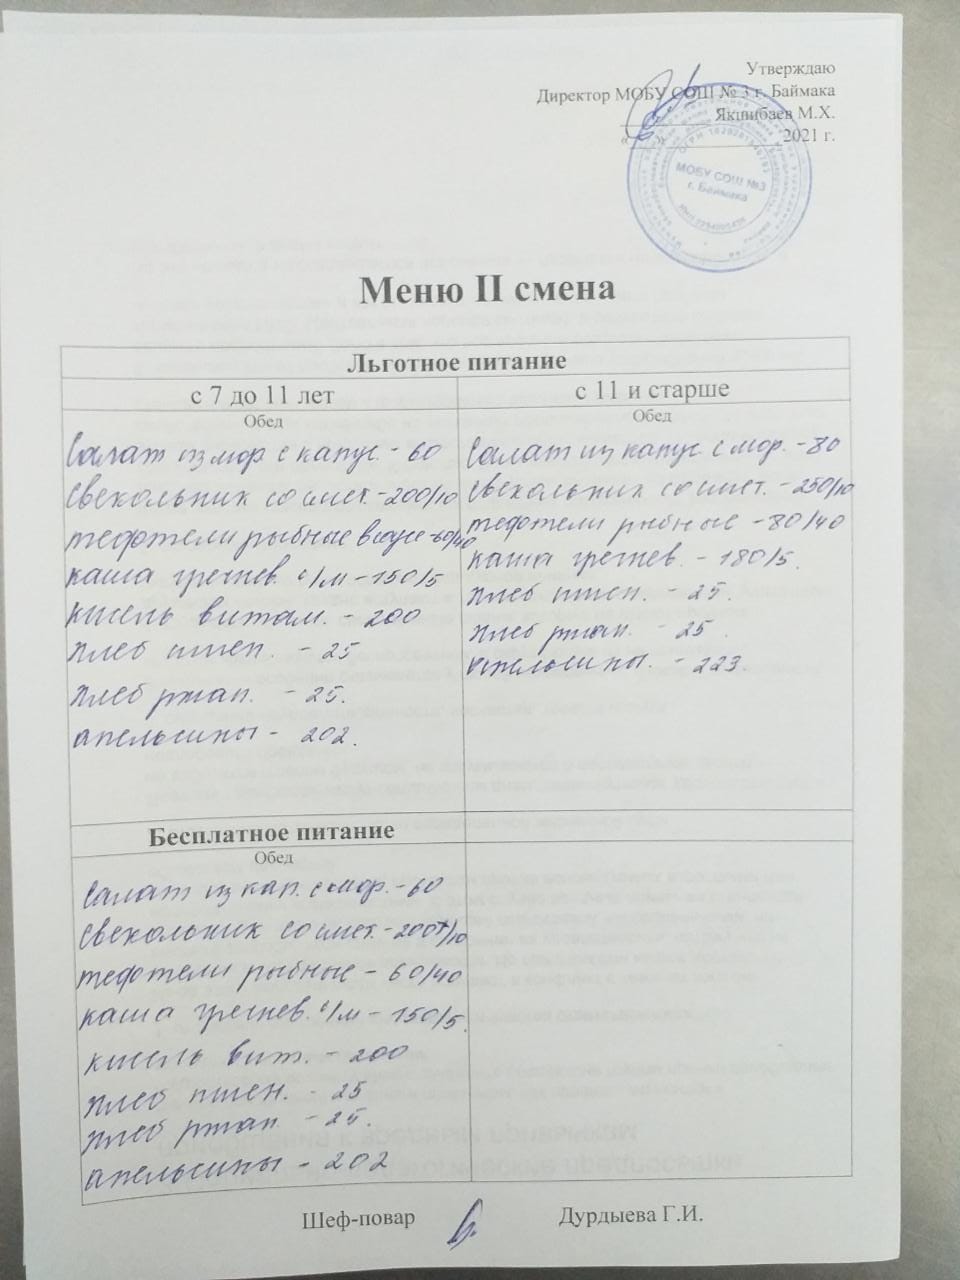 Утверждаю
Директор МОБУ СОШ № 3 г. Баймака
Якшибаев М.Х.
«___»___________2021 г.
МОБУ СОШ №3
г. Баймака
Меню II смена
Льготное питание
с 7 до 11 лет
Обед
Салат из мор с капус. - 60
Свекольник со смет. - 200/10
тефтели рыбные в соусе - 60/40
каша гречнев. с/м - 150/5
кисель витам. - 200
хлеб пшен. - 25
хлеб ржан. - 25.
апельсины - 202.
с 11 и старше
Обед
Салат из капус. с мор. - 80
Свекольник со смет. - 250/10
тефтели рыбные - 80/40
каша гречнев. - 180/5.
хлеб пшен. - 25.
хлеб ржан. - 25.
апельсины. - 223.
Бесплатное питание
Обед
Салат из кап. с мор. - 60
Свекольник со смет. - 200/10
тефтели рыбные - 60/40
каша гречнев. с/м - 150/5.
кисель вит. - 200
хлеб пшен. - 25
хлеб ржан - 25.
апельсины - 202
Шеф-повар Дурдыева Г.И.